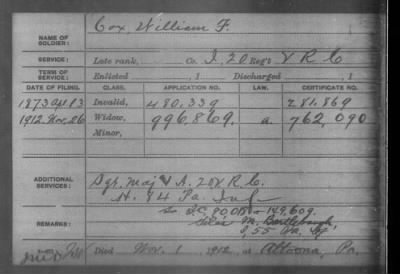 Cox, William F.
NAME OF SOLDIER:
SERVICE: Late rank, Co. I, 20 Reg't V R C
TERM OF SERVICE: Enlisted , 1 Discharged , 1
DATE OF FILING. CLASS. APPLICATION NO. LAW. CERTIFICATE NO.
1873 Invalid, 480,339 281,869
1912, Nov, 26 Widow, 996,869. a. 762,090
Minor,
ADDITIONAL SERVICES: Sgt. Maj V A. 20 V R. C.
H. 84 Pa. Inf
149609.
REMARKS: M. Bartlebaugh,
I, 55 Pa. Inf
Died Nov. 1, 1912, at Altoona, Pa.